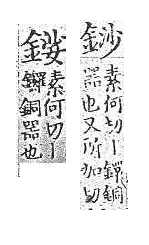 素何切丨鑼銅
器也又所加切
鋖
素何切丨
鑼銅器也